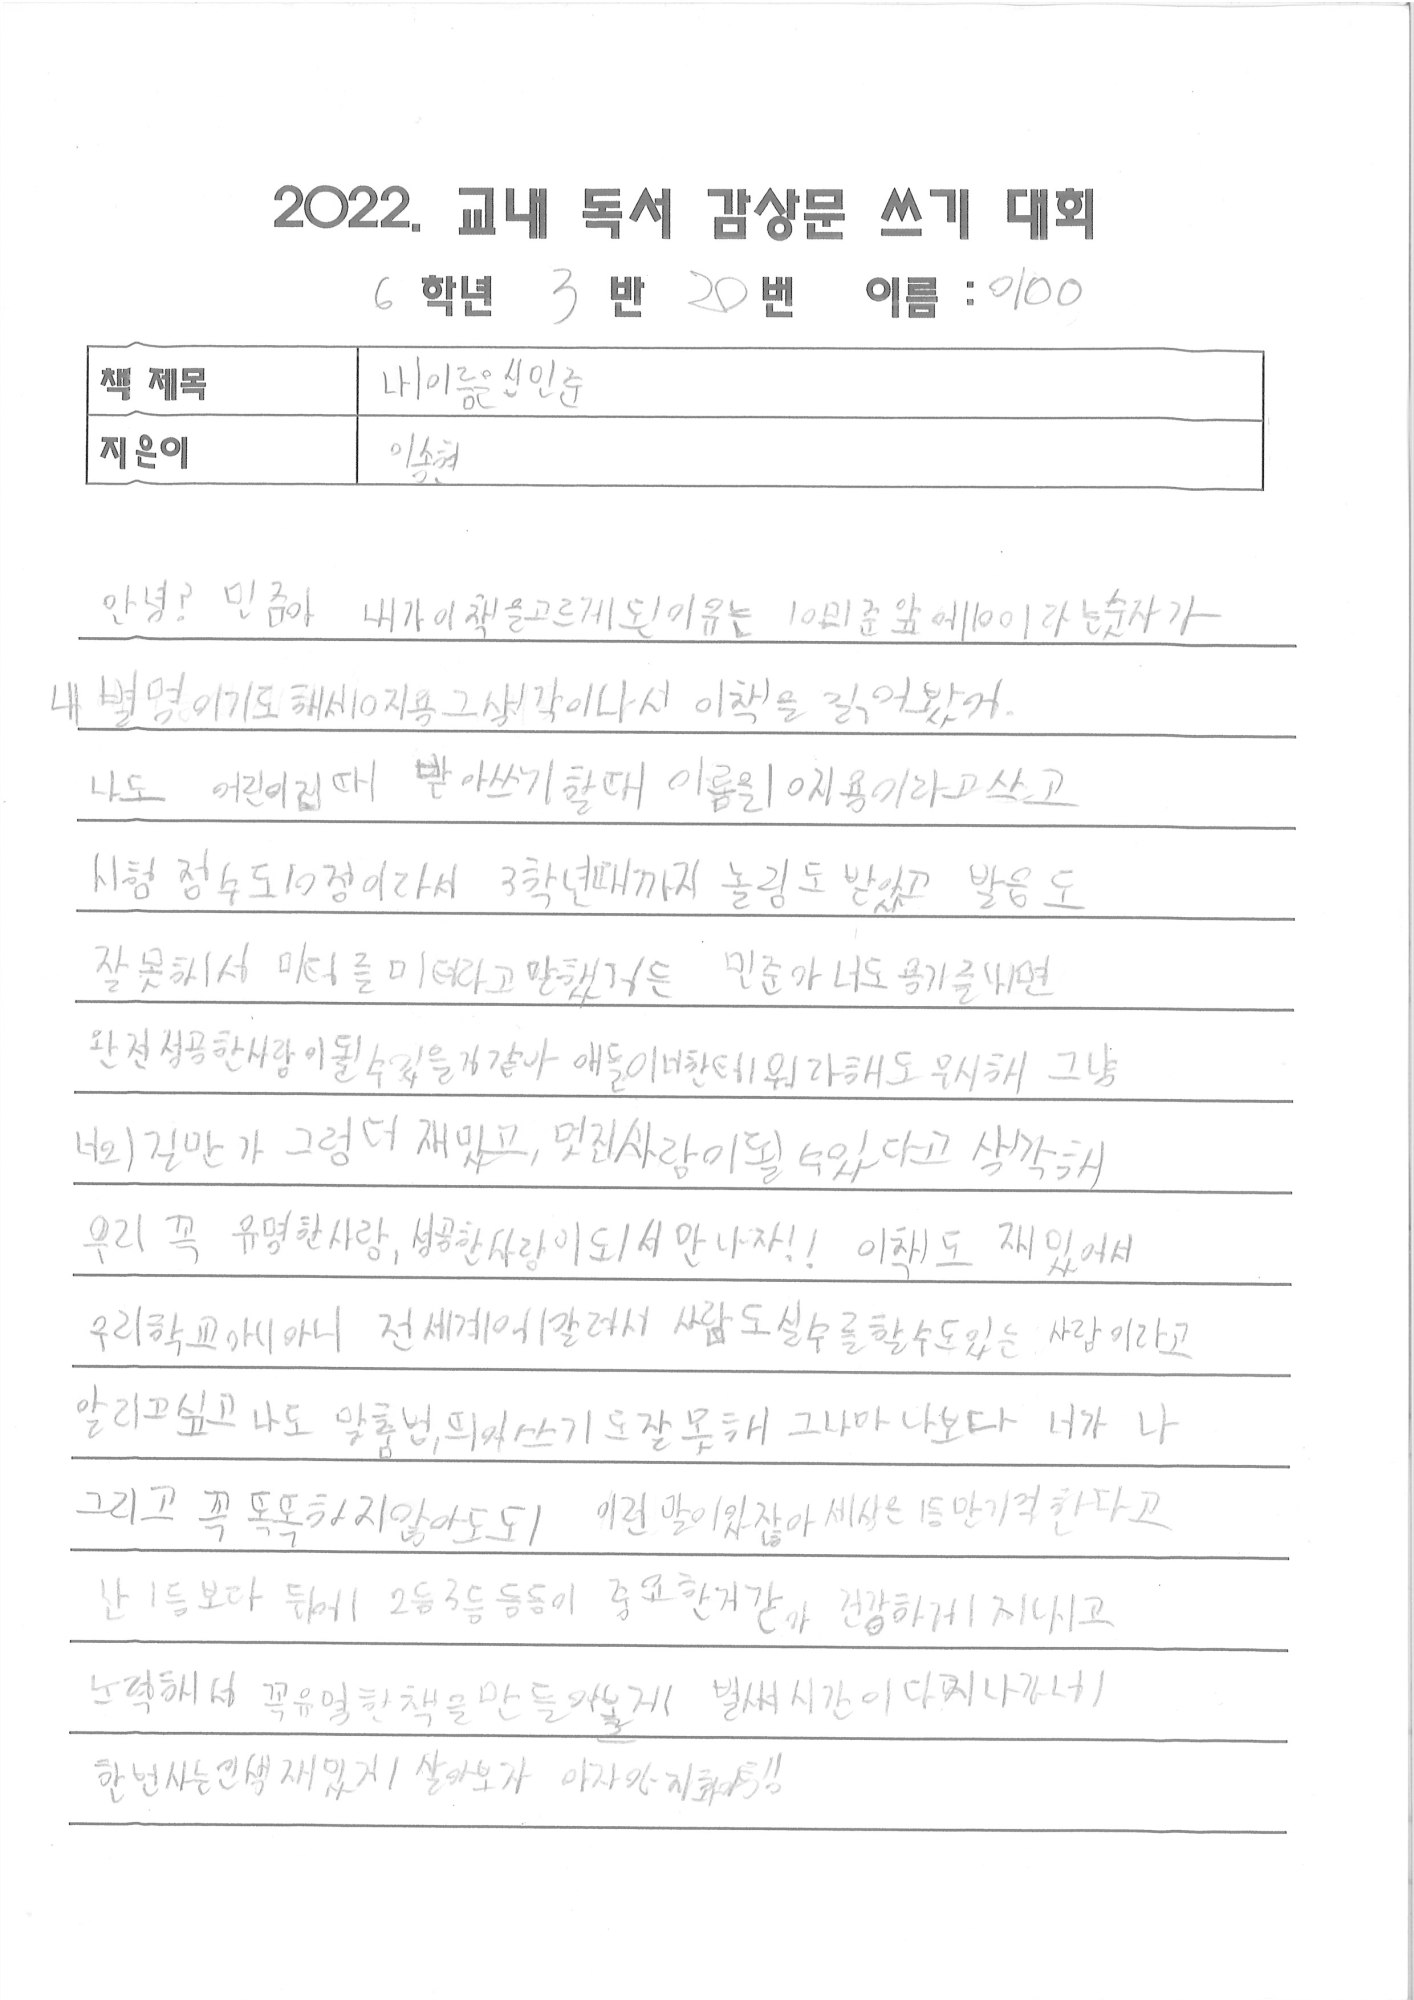 2022. 교내 독서 감상문 쓰기 대회
6 학년 3 반 20 번 이름 : 이00
책 제목 내이름은십민준
지은이 이송현
안녕? 민준아 내가이책을고르게된이유는 10민준앞에10이라는숫자가
내 별명이기도해서10지용그생각이나서 이책을 읽어봤어.
나도 어린이집때 받아쓰기할때 이름을10지용이라고쓰고
시험 점수도10점이라서 3학년때까지 놀림도받았고 발음도
잘못해서 미터를미터라고말했거든 민준가너도용기를내면
완전성공한사람이될수있을거같아 애들이너한테뭐라해도무시해 그냥
너의길만가 그럼더 재밌고, 멋진사람이될수있다고 생각해
우리 꼭 유명한사람, 성공한사람이되서만나자!! 이책도 재밌어서
우리학교아시아니 전세계에알려서 사람도실수를할수도있는 사람이라고
알리고싶고나도 맞춤법,띄어쓰기도잘못해 그나마나보다 너가 나
그리고 꼭똑똑하지않아도되 이런말이있잖아세상은1등만기억한다고
난1등보다 뒤에2등3등등등이 중요한거같아 건강하게지내고
노력해서 꼭유일한책을만들어볼게 벌써시간이다지나갔네
한번사는인생재밌게살아보자 아자아자화이팅